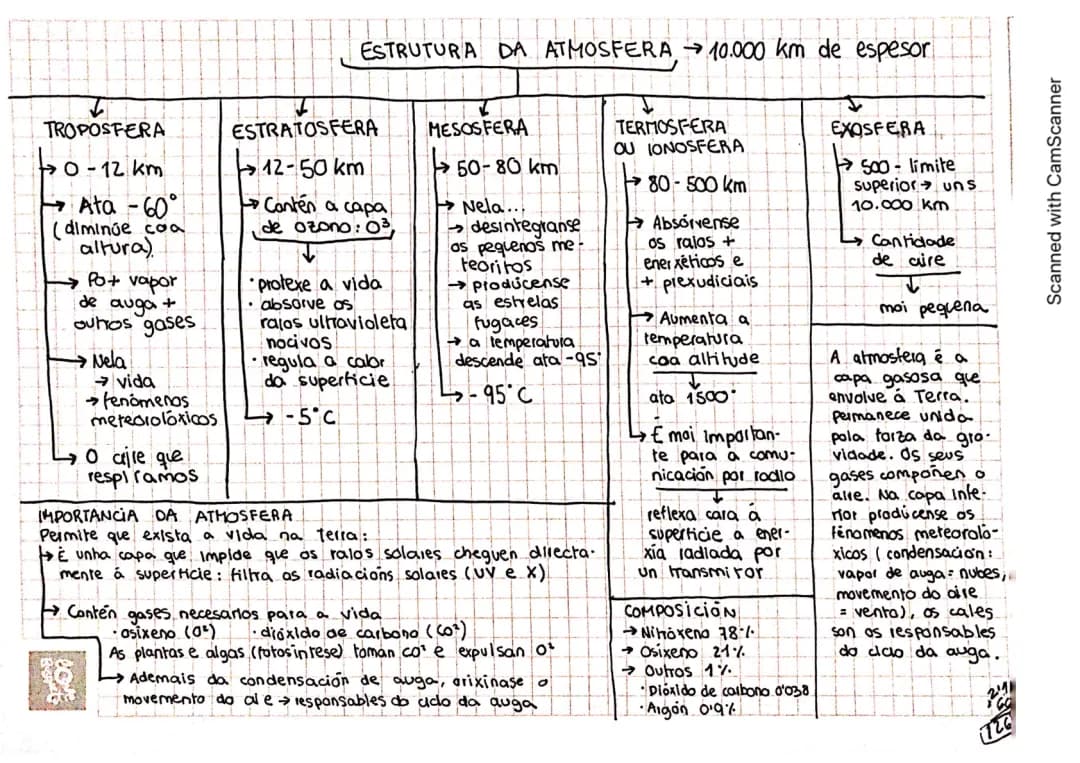 ESTRUTURA DA ATMOSFERA → 10.000 km de espesor
TROPOSFERA
→ 0 - 12 km
→ Ata -60°
(diminúe coa
altura).
→ Po + vapor
de auga +
outros gases
→ Nela
→ vida
→ fenómenos
meteorolóxicos
→ O aire que
respiramos
ESTRATOSFERA
→ 12-50 km
→ Contén a capa
de ozono: O³
· protexe a vida
· absorve os
raios ultravioleta
nocivos
· regula a calor
da superficie
→ -5°C
MESOSFERA
→ 50-80 km
→ Nela...
→ desintégranse
os pequenos me-
teoritos
→ prodúcense
as estrelas
fugaces
→ a temperatura
descende ata -95°
→ -95°C
TERMOSFERA
OU IONOSFERA
→ 80 - 500 km
→ Absórvense
os raios +
enerxéticos e
+ prexudiciais
→ Aumenta a
temperatura
coa altitude
ata 1500°
→ É moi importan-
te para a comu-
nicación por radio
reflexa cara á
superficie a ener-
xía radiada por
un transmiror
EXOSFERA
→ 500 - límite
superior → uns
10.000 km
→ Cantidade
de aire
moi pequena
A atmosfera é a
capa gasosa que
envolve á Terra.
Permanece unida
pola forza da gra-
vidade. Os seus
gases compoñen o
aire. Na capa infe-
rior prodúcense os
fenómenos meteoroló-
xicos (condensación:
vapor de auga = nubes,
movemento do aire
= vento), os cales
son os responsables
do ciclo da auga.
IMPORTANCIA DA ATMOSFERA
Permite que exista a vida na Terra:
→ É unha capa que impide que os raios solares cheguen directa-
mente á superficie: filtra as radiacións solares (UV e X)
→ Contén gases necesarios para a vida
· osíxeno (O²) · dióxido de carbono (CO²)
As plantas e algas (fotosíntese) toman CO² e expulsan O²
→ Ademais da condensación de auga, orixínase o
movemento do aie → responsables do ciclo da auga
COMPOSICIÓN
→ Nitróxeno 78%
→ Osíxeno 21%
→ Outros 1%
· Dióxido de carbono 0'038
· Argón 0'9%
Scanned with CamScanner